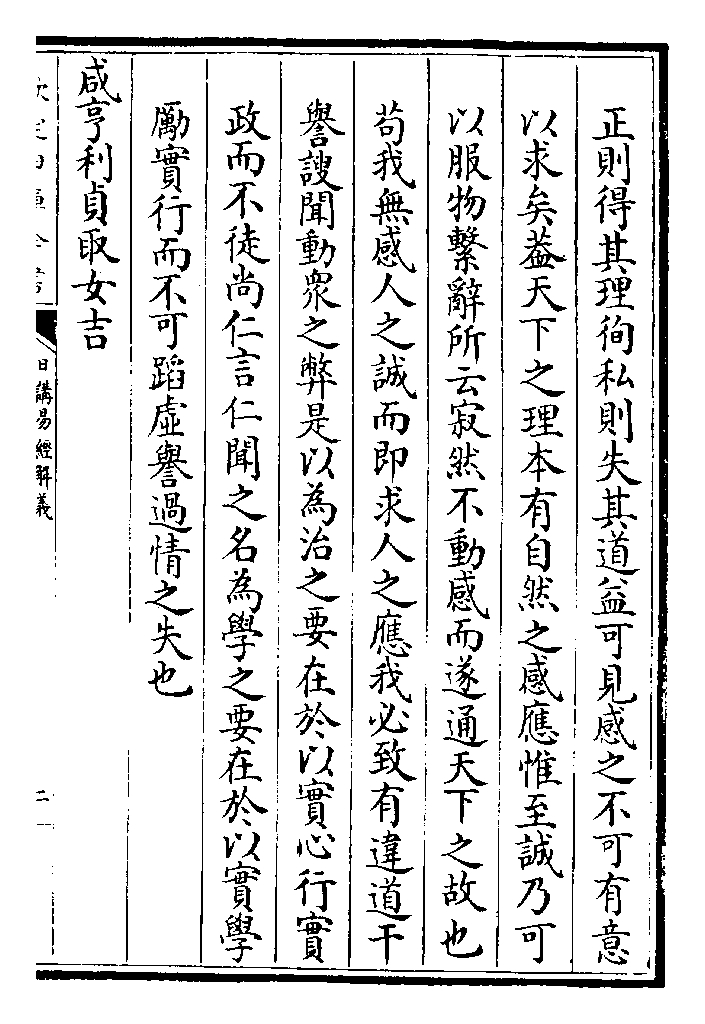 正則得其理徇私則失其道益可見感之不可有意
以求矣葢天下之理本有自然之感應惟至誠乃可
以服物繫辭所云寂然不動感而遂通天下之故也
苟我無感人之誠而即求人之應我必致有違道干
譽謏聞動衆之弊是以為治之要在於以實心行實
政而不徒尚仁言仁聞之名為學之要在於以實學
勵實行而不可蹈虛譽過情之失也
咸亨利貞取女吉
日講易經解義
二